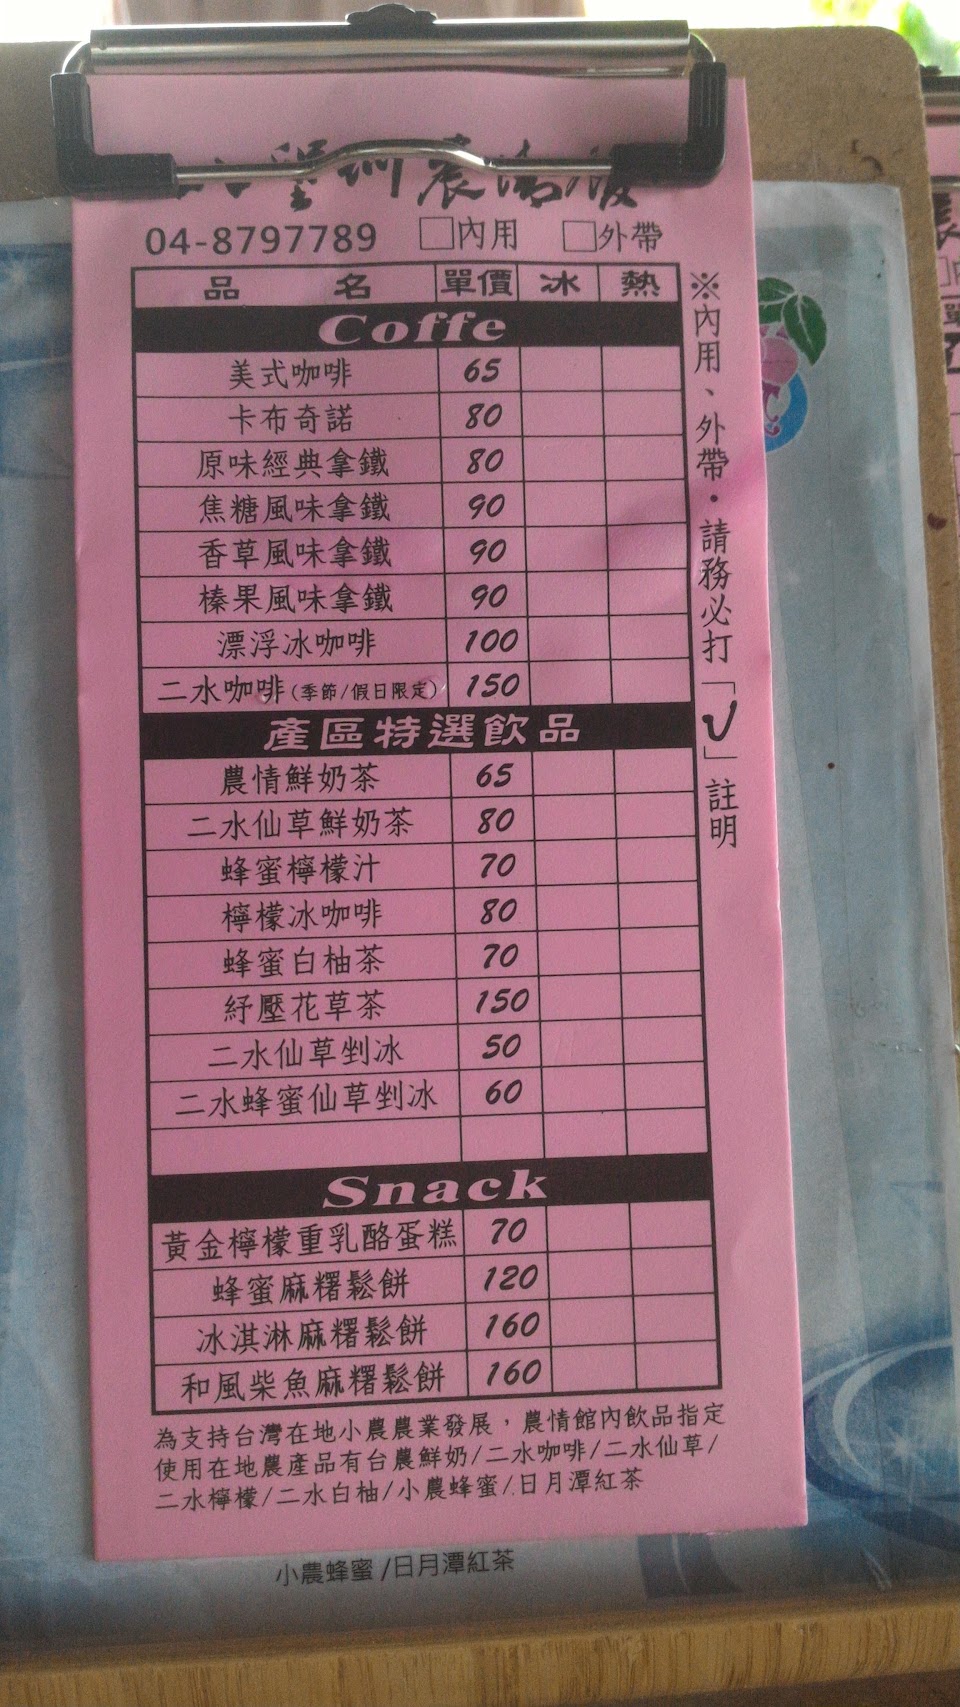 04-8797789 □內用 □外帶
品名 單價 冰 熱
Coffe
美式咖啡 65
卡布奇諾 80
原味經典拿鐵 80
焦糖風味拿鐵 90
香草風味拿鐵 90
榛果風味拿鐵 90
漂浮冰咖啡 100
二水咖啡(季節/假日限定) 150
產區特選飲品
農情鮮奶茶 65
二水仙草鮮奶茶 80
蜂蜜檸檬汁 70
檸檬冰咖啡 80
蜂蜜白柚茶 70
紓壓花草茶 150
二水仙草剉冰 50
二水蜂蜜仙草剉冰 60
Snack
黃金檸檬重乳酪蛋糕 70
蜂蜜麻糬鬆餅 120
冰淇淋麻糬鬆餅 160
和風柴魚麻糬鬆餅 160
為支持台灣在地小農農業發展，農情館內飲品指定
使用在地農產品有台農鮮奶/二水咖啡/二水仙草/
二水檸檬/二水白柚/小農蜂蜜/日月潭紅茶
※內用、外帶・請務必打「✓」註明
小農蜂蜜/日月潭紅茶